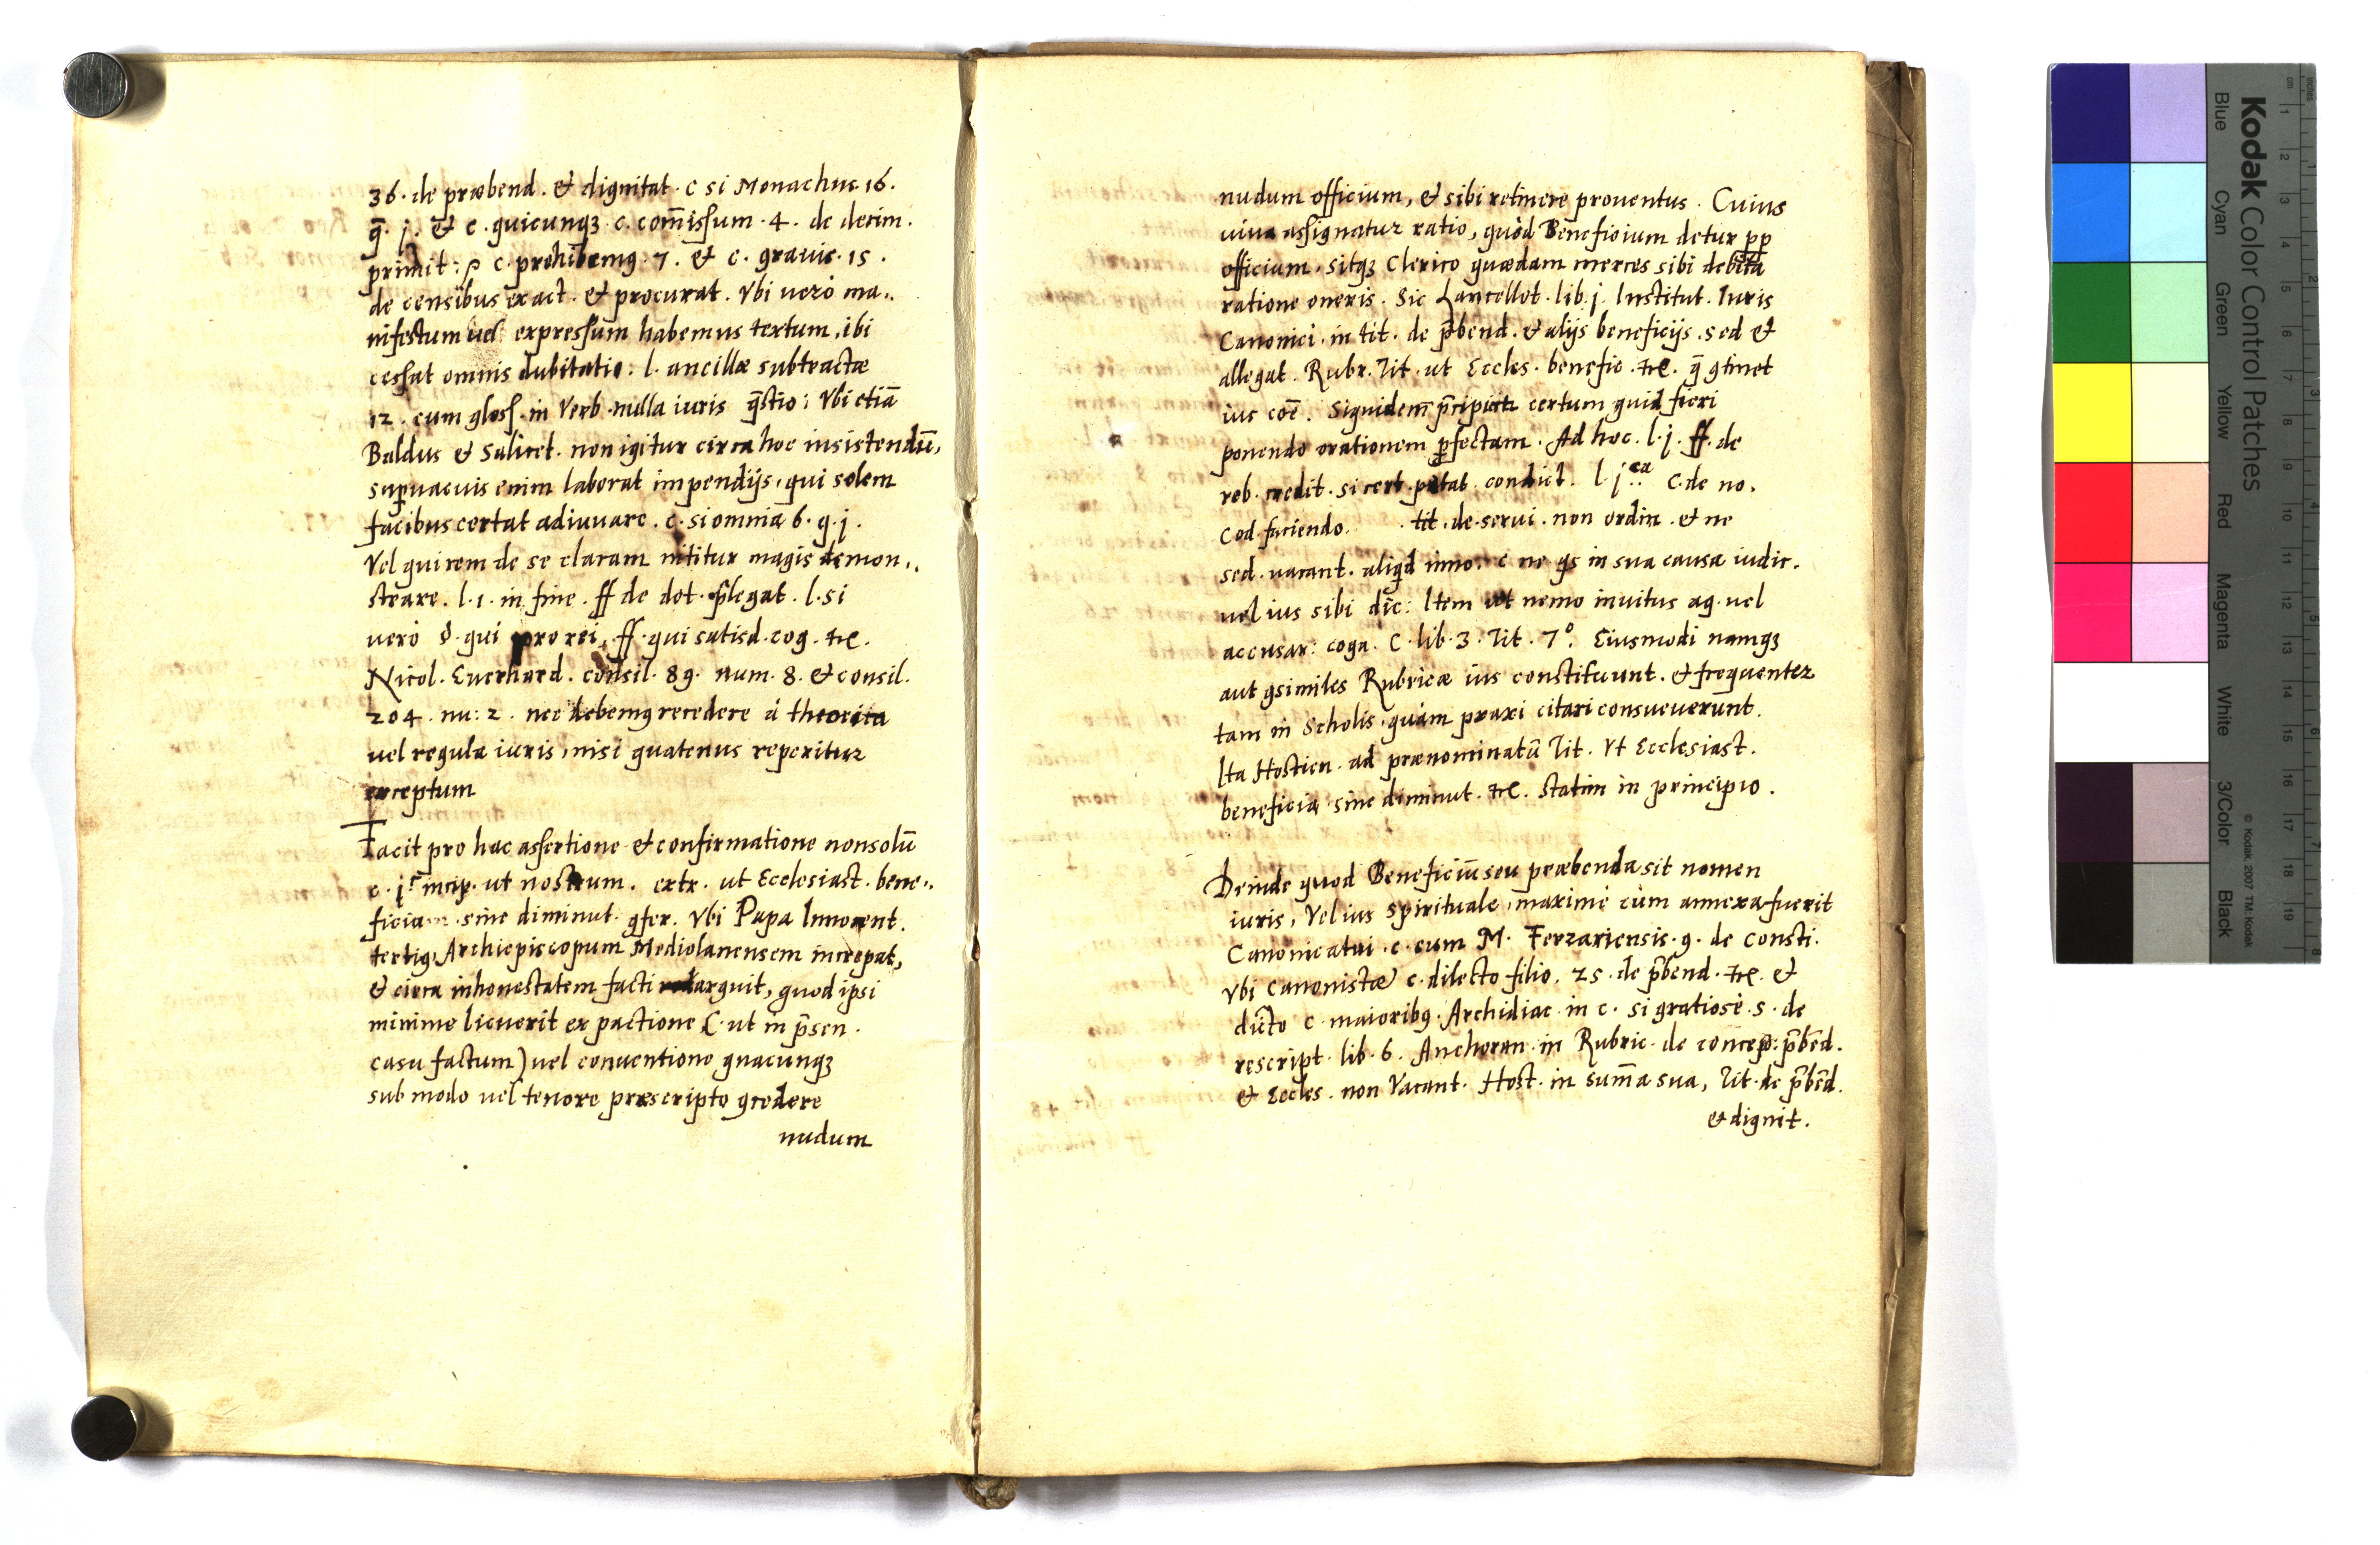 36. de præbend. & dignitat. c si Monachus 16.
q̄. j. & c. quicunqꝫ. c. com̄issum. 4. de decim.
primit: c. prohibemꝰ. 7. & c. grauis. 15.
de censibus exact. & procurat. Vbi uerò ma„
nifestum uel expressum habemus textum, ibi
cessat omnis dubitatio. l. ancillæ subtractæ
12. cum gloss. in Verb. nulla iuris q̄stio: Vbi etiā
Baldus & Salicet. non igitur circa hoc insistendū,
supuacuis enim laborat impendijs, qui solem
facibus certat adiuuare. c. si omnia 6. q. j.
Vel qui rem de se claram nititur magis demon„
strare. l. 1. in fine. ff de dot. p̄legat. l. si
uerò §. qui pro rei. ff. qui satisd. cog. &c.
Nicol. Euerhard. consil. 89. num. 8. & consil.
204. nu: 2. nec debemꝰ recedere à theorica
uel regula iuris, nisi quatenus reperitur
exceptum
Facit pro hac assertione & confirmatione non solū
c. j. ut nostrum. extr. ut Ecclesiast. bene„
ficia sine diminut. ꝯfer. Vbi Papa Innocent.
tertiꝰ Archiepiscopum Mediolanensem increpat,
& circa inhonestatem facti arguit, quod ipsi
minime licuerit ex pactione (ut in p̄sen.
casu factum) uel conuentione quacunqꝫ
sub modo uel tenore præscripto ꝯcedere
nudum
nudum officium, & sibi retinere prouentus. Cuius
uiua assignatur ratio, quòd Beneficium detur pp̄
officium, sitqꝫ Clerico quædam merces sibi debita
ratione oneris. Sic Lancellot. lib. j. Institut. Iuris
Canonici. in tit. de p̄bend. & alijs beneficijs. sed &
allegat. Rubr. Tit. ut Eccles. benefic. &c. q̄ ꝯtinet
ius coē. Siquidem certum quid fieri
ponendo orationem ꝑfectam. Ad hoc. l. j. ff. de
reb. credit. si cert. petat. condict. l. j. C. de no.
Cod. faciendo. tit. de serui. non ordin. & ne
sed. uacant. aliqd inno. c ne qs in sua causa iudic.
uel ius sibi dic: Item ut nemo inuitus ag. uel
accusar: coga. C. lib. 3. Tit. 7°. Eiusmodi namqꝫ
aut ꝯsimiles Rubricæ ius constituunt. & frequenter
tam in Scholis, quàm praxi citari consueuerunt.
Ita Hostien. ad prænominatū Tit. Vt Ecclesiast.
beneficia sine diminut. &c. statim in principio.
Deinde quod Beneficiū seu præbenda sit nomen
iuris, Vel ius spirituale, maximè cùm annexa fuerit
Canonicatui. c. cum M. Ferrariensis. 9. de consti.
Vbi Canonistæ c. dilecto filio. 25. de p̄bend. &c. &
dicto c. maioribꝰ. Archidiac. in c. si gratiosè. 5. de
rescript. lib. 6. Anchoran. in Rubric. de conceß: p̄bēd.
& Eccles. non Vacant. Host. in sum̄a sua, Tit. de p̄bēd.
& dignit.
Kodak Color Control Patches
Blue Cyan Green Yellow Red Magenta White 3/Color Black
© Kodak, 2007 TM: Kodak